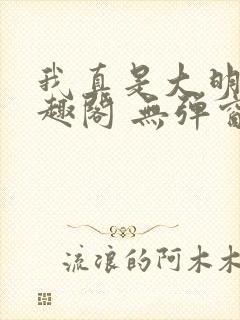 我真是大明
趣阁 無弹窗
流浪的阿木木